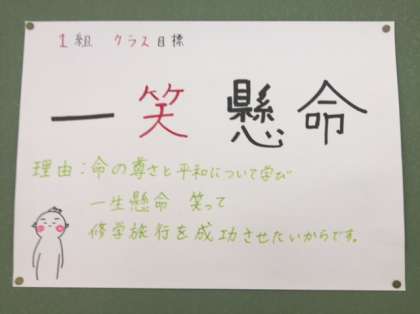 1組 クラス目標
一笑懸命
理由:命の尊さと平和について学び
一生懸命 笑って
修学旅行を成功させたいからです。